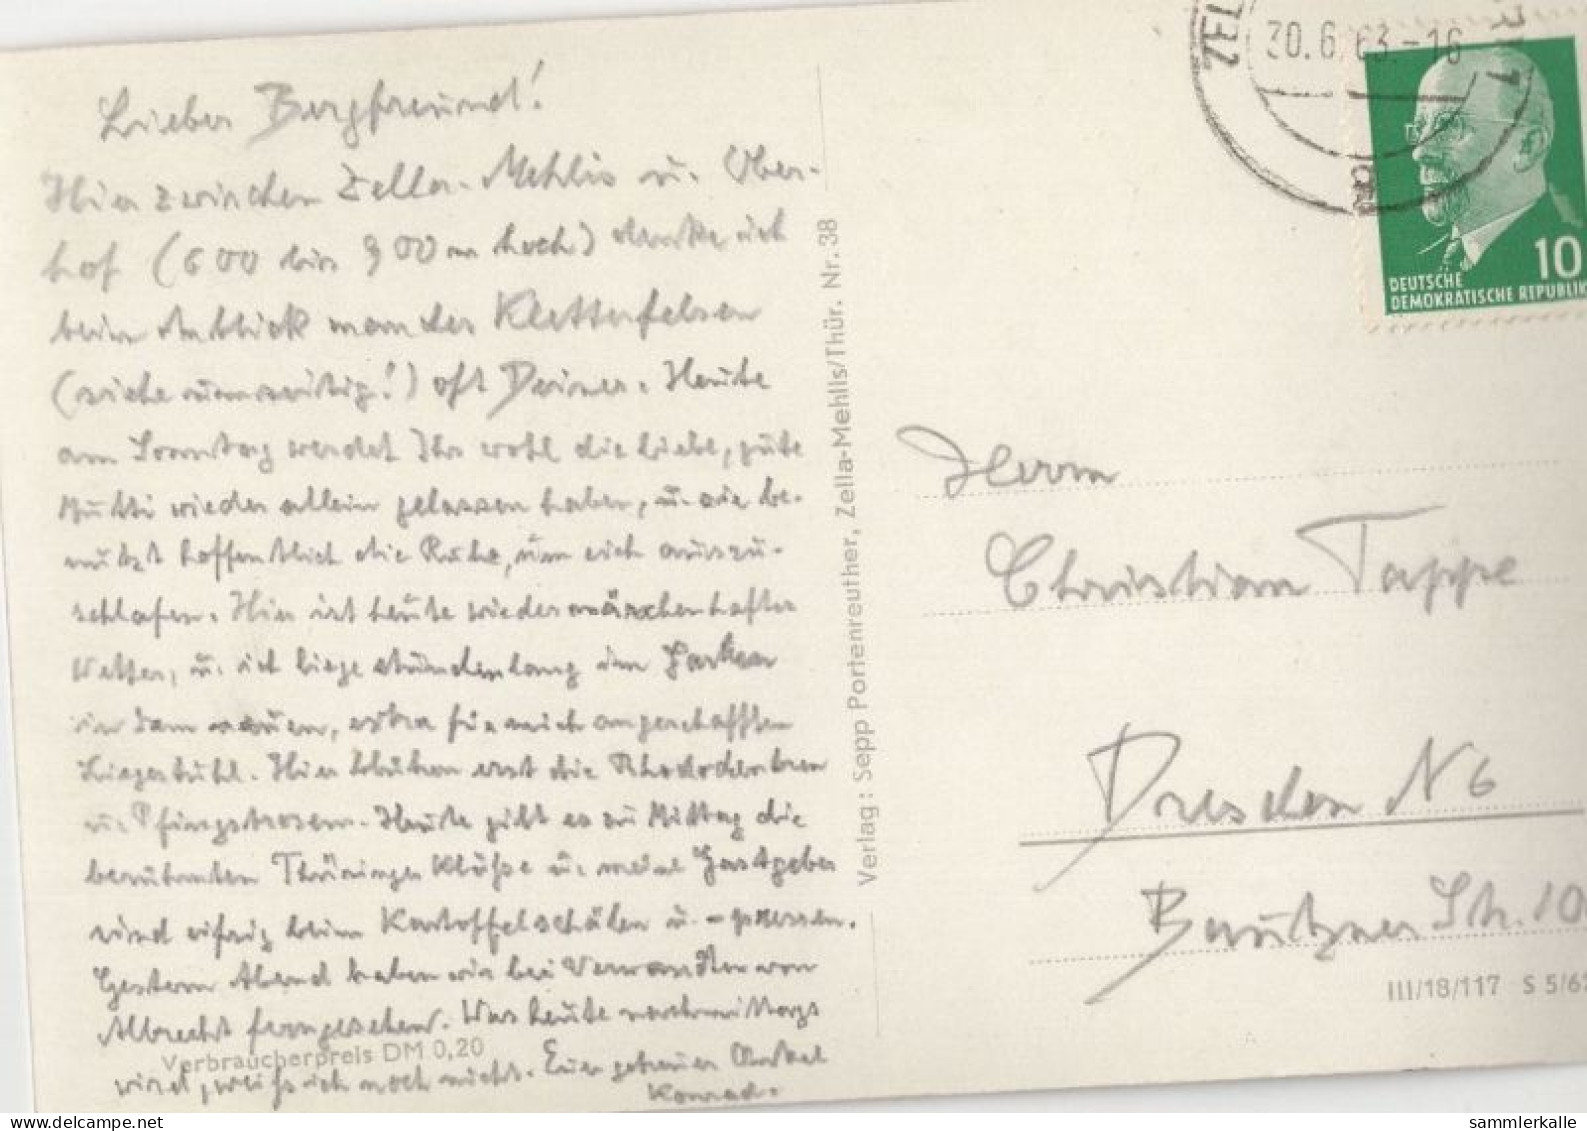 Lieber Bergfreund!
Hier zwischen Zella-Mehlis u. Ober-
hof (600 bis 900 m hoch) denke ich
beim Anblick mancher Kletterfelsen
(siehe umseitig!) oft Deiner. Heute
am Sonntag werdet Ihr wohl die liebe, gute
Mutti wieder allein gelassen haben, u. sie be-
nutzt hoffentlich die Ruhe, um sich auszu-
schlafen. Hier ist heute wieder märchenhaftes
Wetter, u. ich liege stundenlang im Garten
in dem neuen, extra für mich angeschafften
Liegestuhl. Hier blühen erst die Rhododendren
u. Pfingstrosen. Heute gibt es zu Mittag die
berühmten Thüringer Klöße u. meine Gastgeber
sind eifrig beim Kartoffelschälen u. -pressen.
Gestern Abend haben wir bei Verwandten von
Albrecht ferngesehen. Was heute nachmittags
wird, weiß ich noch nicht. Euer getreuer Onkel
Konrad.
Verbraucherpreis DM 0,20
Verlag: Sepp Portenreuther, Zella-Mehlis/Thür. Nr. 38
ZEL
30.6.63.-16
10
DEUTSCHE
DEMOKRATISCHE REPUBLIK
Herrn
Christian Tappe
Dresden N 6
Bautzner Str. 10
III/18/117 S 5/62
sammlerkalle